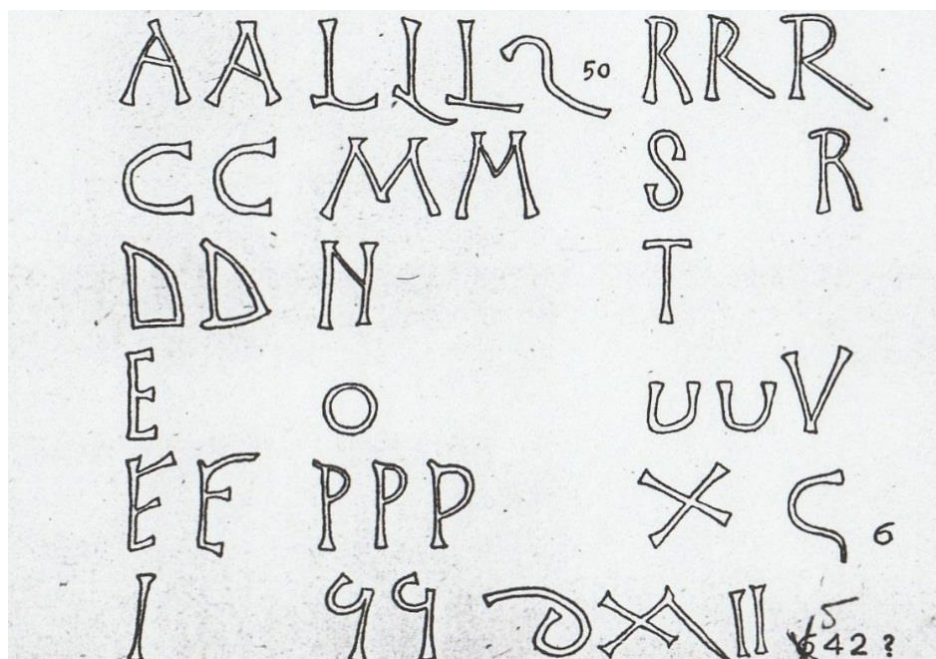 A A L L L 50 R R R
C C M M S R
D D N T
E O U U V
E E P P P X 6
I q q X II 542 ?